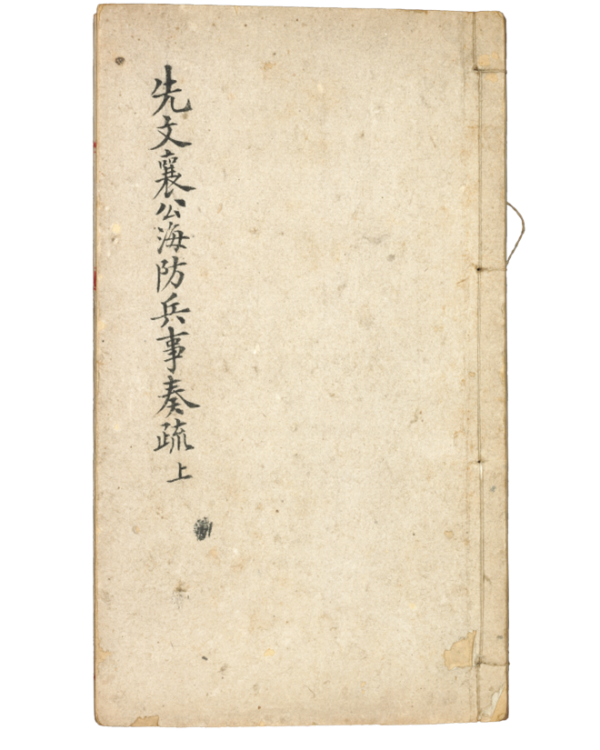 先文襄公海防兵事奏疏上